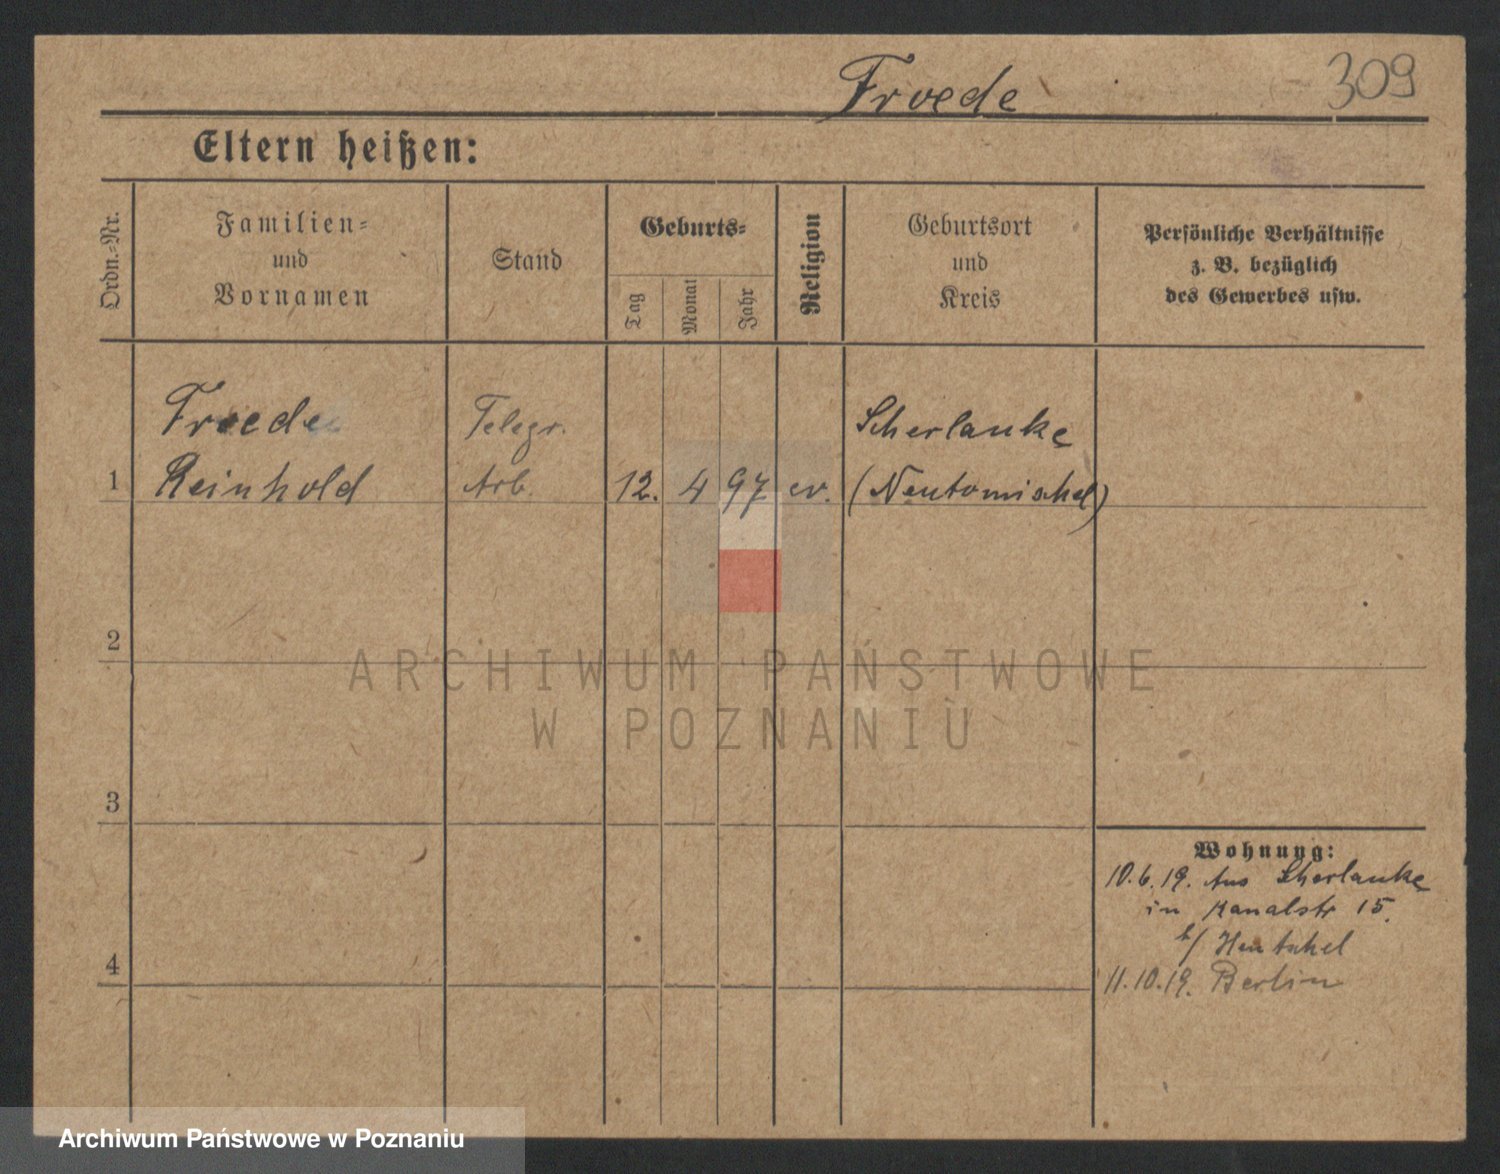 Froede 309
Eltern heißen:
Ordn.-Nr.
Familien-
und
Vornamen
Stand
Geburts-
Tag
Monat
Jahr
Religion
Geburtsort
und
Kreis
Persönliche Verhältnisse
z. B. bezüglich
des Gewerbes usw.
Froede Telegr. Scherlanke
1 Reinhold Arb. 12. 4 97 ev. (Neutomischel)
2
ARCHIWUM PAŃSTWOWE
W POZNANIU
3
Wohnung:
10.6.19. Aus Scherlanke
in Kanalstr 15.
b/ Hentschel
4
11.10.19. Berlin
Archiwum Państwowe w Poznaniu